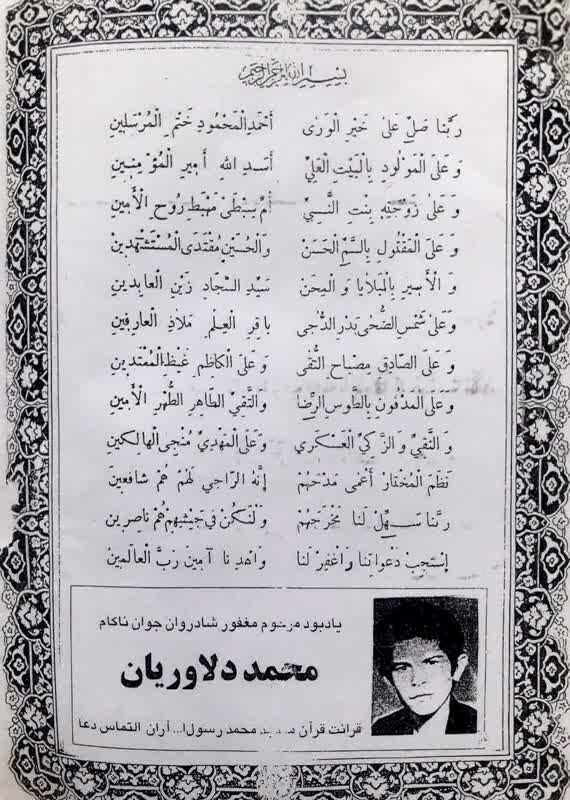 بسم الله الرحمن الرحیم
رَبَّنا صَلِّ عَلىٰ خَيْرِ الْوَرىٰ أَحْمَدِ الْمَحْمُودِ خَتْمِ الْمُرْسَلِين
وَ عَلَى الْمَوْلُودِ بِالْبَيْتِ الْعَلِيِّ أَسَدِ اللهِ أَمِيرِ الْمُؤْمِنِين
وَ عَلىٰ زَوْجَتِهِ بِنْتِ النَّبِيِّ أُمِّ سِبْطَىْ مَهْبِطِ رُوحِ الْأَمِين
وَ عَلَى الْمَقْتُولِ بِالسَّمِّ الْحَسَنْ وَ الْحُسَيْنِ مُقْتَدَى الْمُسْتَشْهَدِينْ
وَ الْأَسِيرِ بِالْبَلايا وَ الْمِحَنْ سَيِّدِ السَّجّادِ زَيْنِ الْعابِدِين
وَ عَلىٰ شَمْسِ الضُّحىٰ بَدْرِ الدُّجى باقِرِ الْعِلْمِ مَلاذِ الْعارِفِين
وَ عَلَى الصّادِقِ مِصْباحِ التُّقى وَ عَلَى الْكاظِمِ غَيْظِ الْمُعْتَدِين
وَ عَلَى الْمَدْفُونِ بِالطُّوسِ الرِّضا وَ التَّقِيِّ الطّاهِرِ الطُّهْرِ الْأَمِين
وَ النَّقِيِّ وَ الزَّكِيِّ الْعَسْكَرِي وَ عَلَى الْمَهْدِيِّ مُنْجِي الْهالِكِين
نَظَمَ الْمُخْتارُ أَعْمى مَدْحَهُمْ إِنَّهُ الرّاجِي لَهُمْ هُمْ شافِعِين
رَبَّنا سَهِّلْ لَنا مَخْرَجَهُمْ وَ لْنَكُنْ فِي جَيْشِهِمْ هُمْ ناصِرِين
إِسْتَجِبْ دَعْواتِنا وَ اغْفِرْ لَنا وَ اهْدِنا آمِينَ رَبَّ الْعالَمِين
یادبود مرحوم مغفور شادروان جوان ناکام
محمد دلاوریان
قرائت قرآن محمد رسول ا... آران التماس دعا